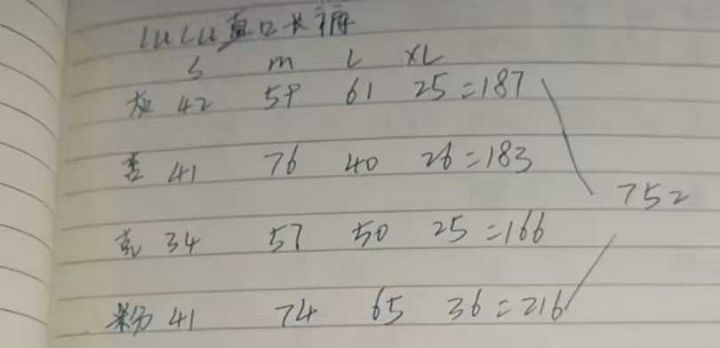 LULU直口长裤
S M L XL
灰 42 59 61 25=187
杏 41 76 40 26=183
752
34 57 50 25=166
粉 41 74 65 36=216